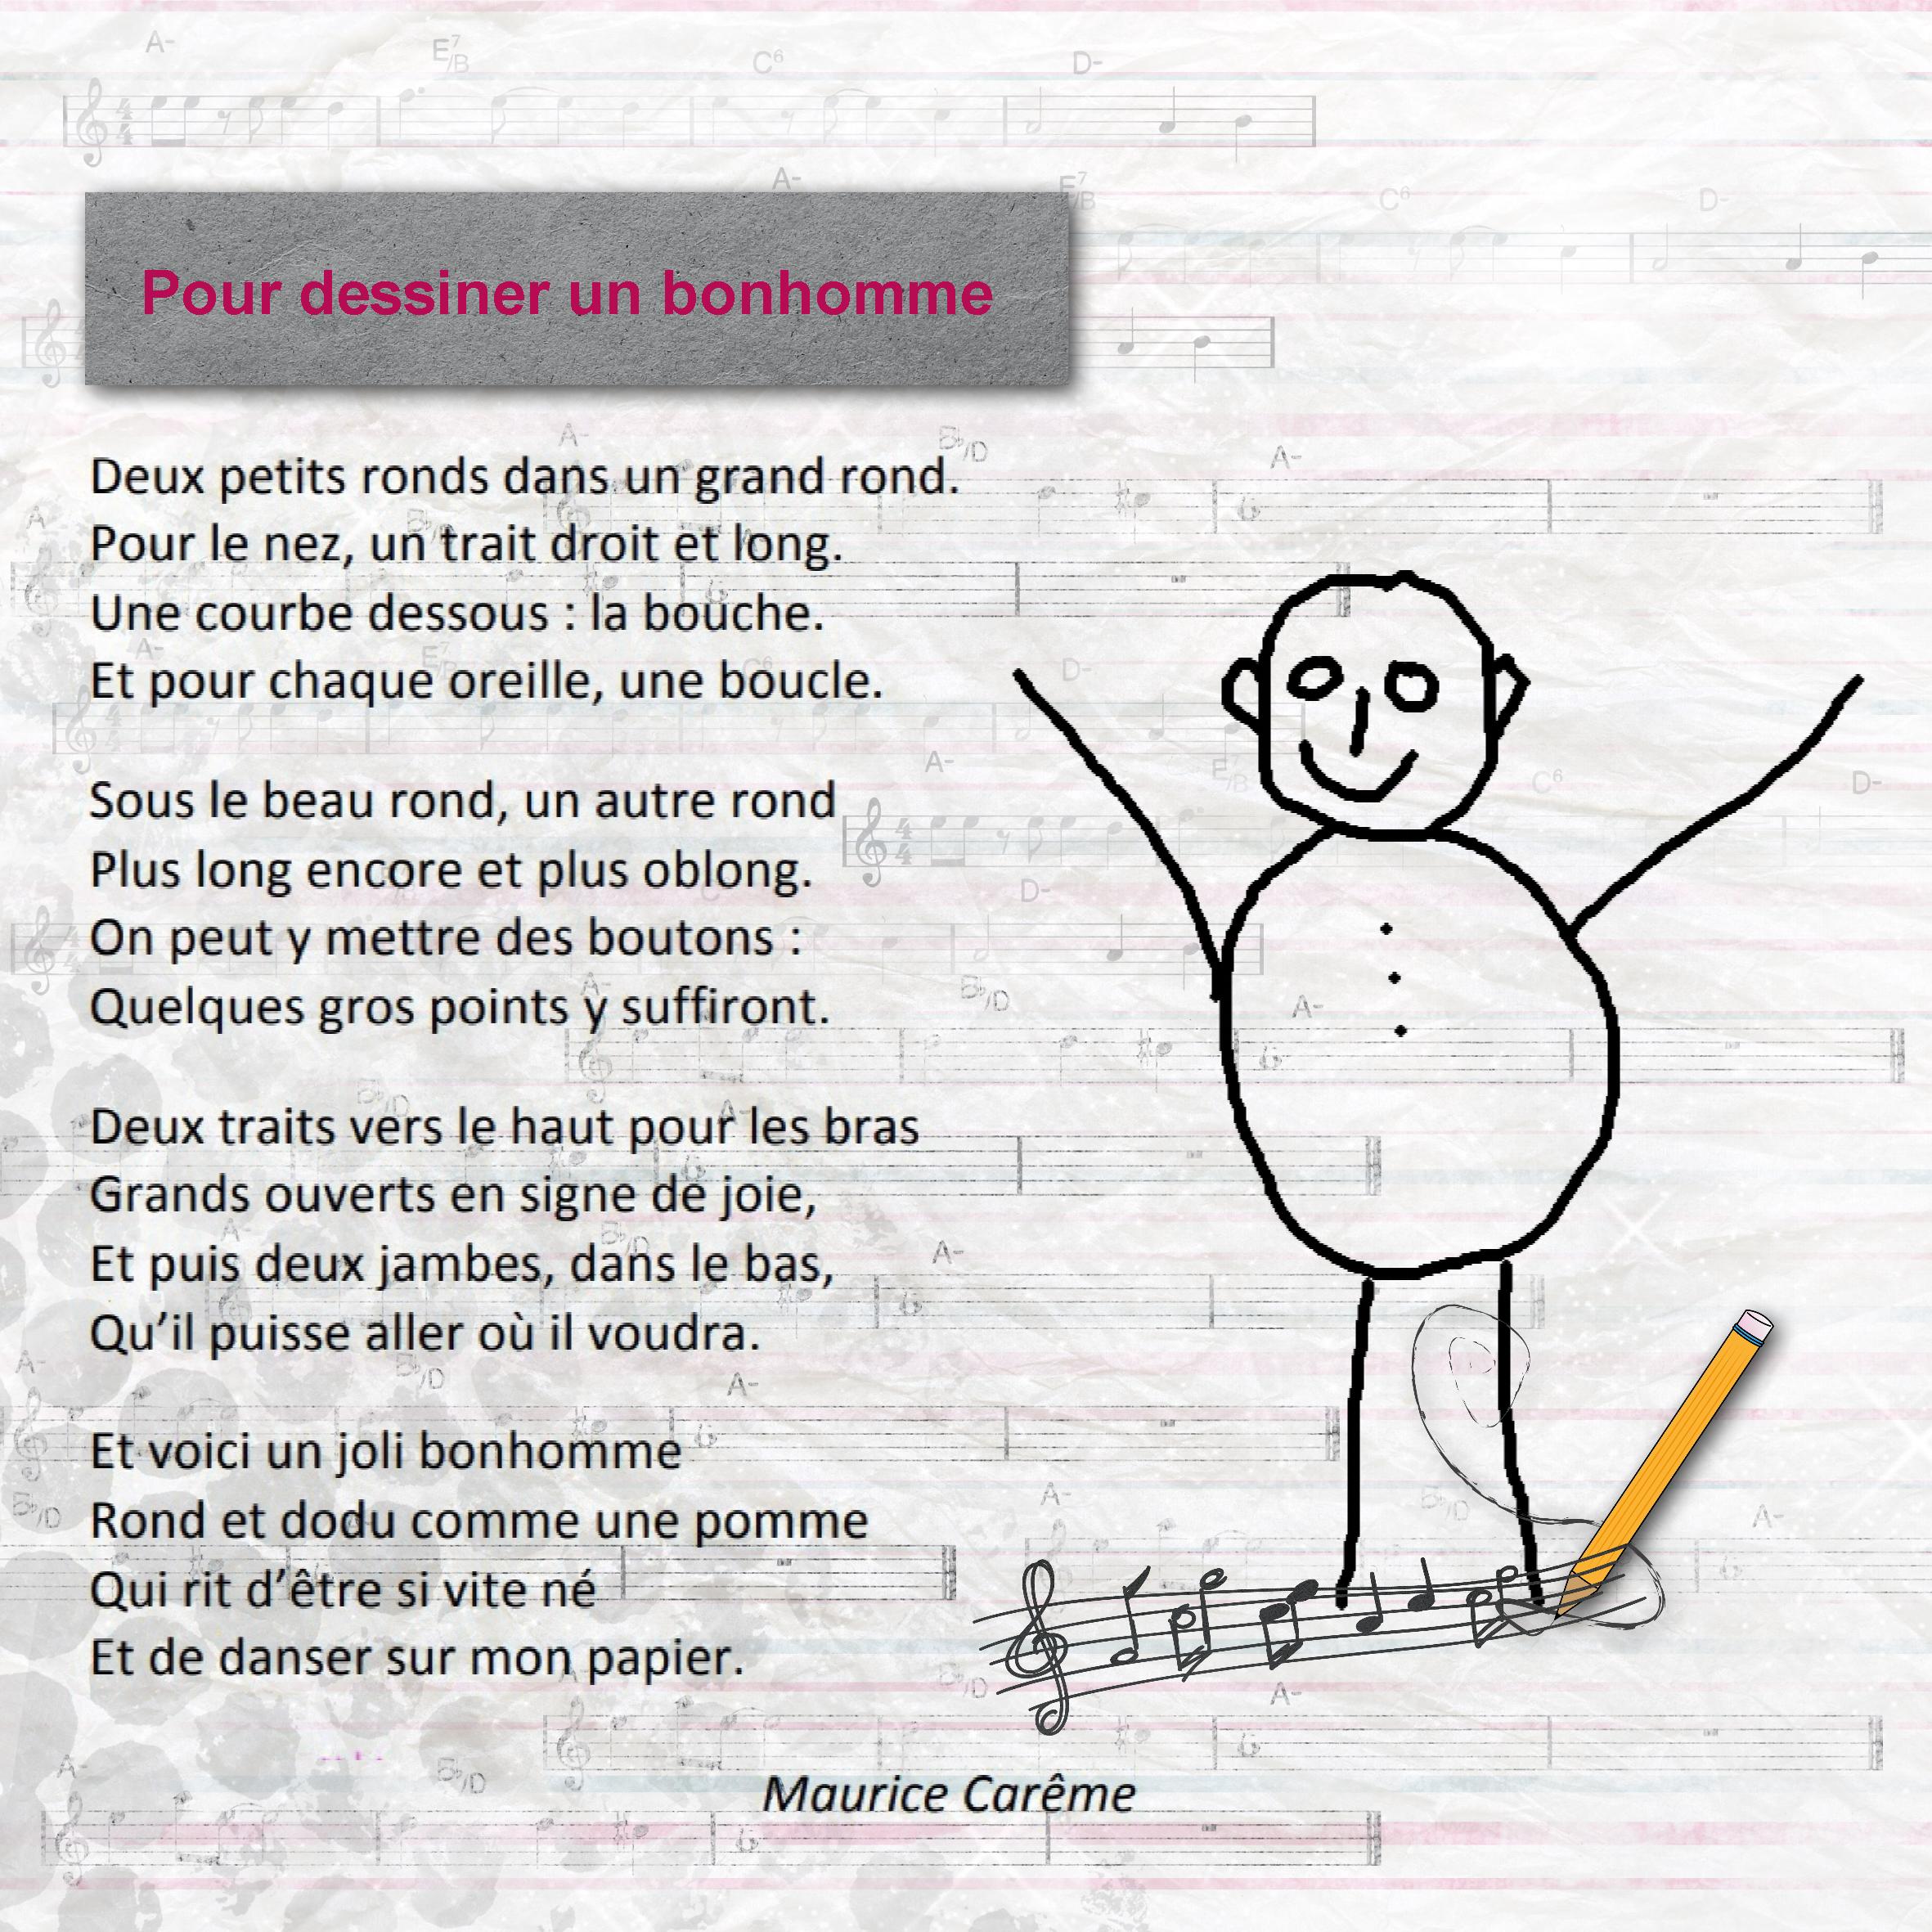 Pour dessiner un bonhomme
Deux petits ronds dans un grand rond.
Pour le nez, un trait droit et long.
Une courbe dessous : la bouche.
Et pour chaque oreille, une boucle.
Sous le beau rond, un autre rond
Plus long encore et plus oblong.
On peut y mettre des boutons :
Quelques gros points y suffiront.
Deux traits vers le haut pour les bras
Grands ouverts en signe de joie,
Et puis deux jambes, dans le bas,
Qu’il puisse aller où il voudra.
Et voici un joli bonhomme
Rond et dodu comme une pomme
Qui rit d’être si vite né
Et de danser sur mon papier.
Maurice Carême